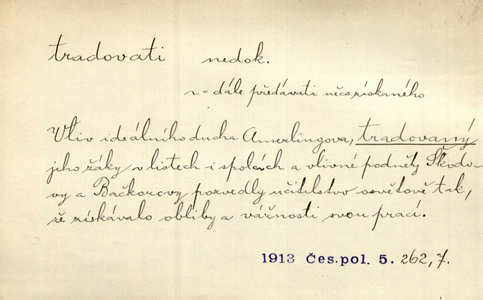 tradovati nedok.
v = dále předávati něco získaného
Vliv ideálního ducha Amerlingova, tradovaný
jeho žáky v listech i spolcích a vlivné podněty Škodo-
vy a Bačkorovy pozvedly učitelstvo osvětově tak,
že získávalo obliby a vážnosti svou prací.
1913 Čes. pol. 5. 262,7.